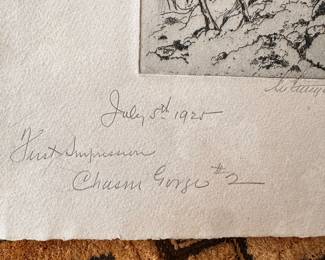 July 5th 1925
First Impression
Chasm Gorge #2